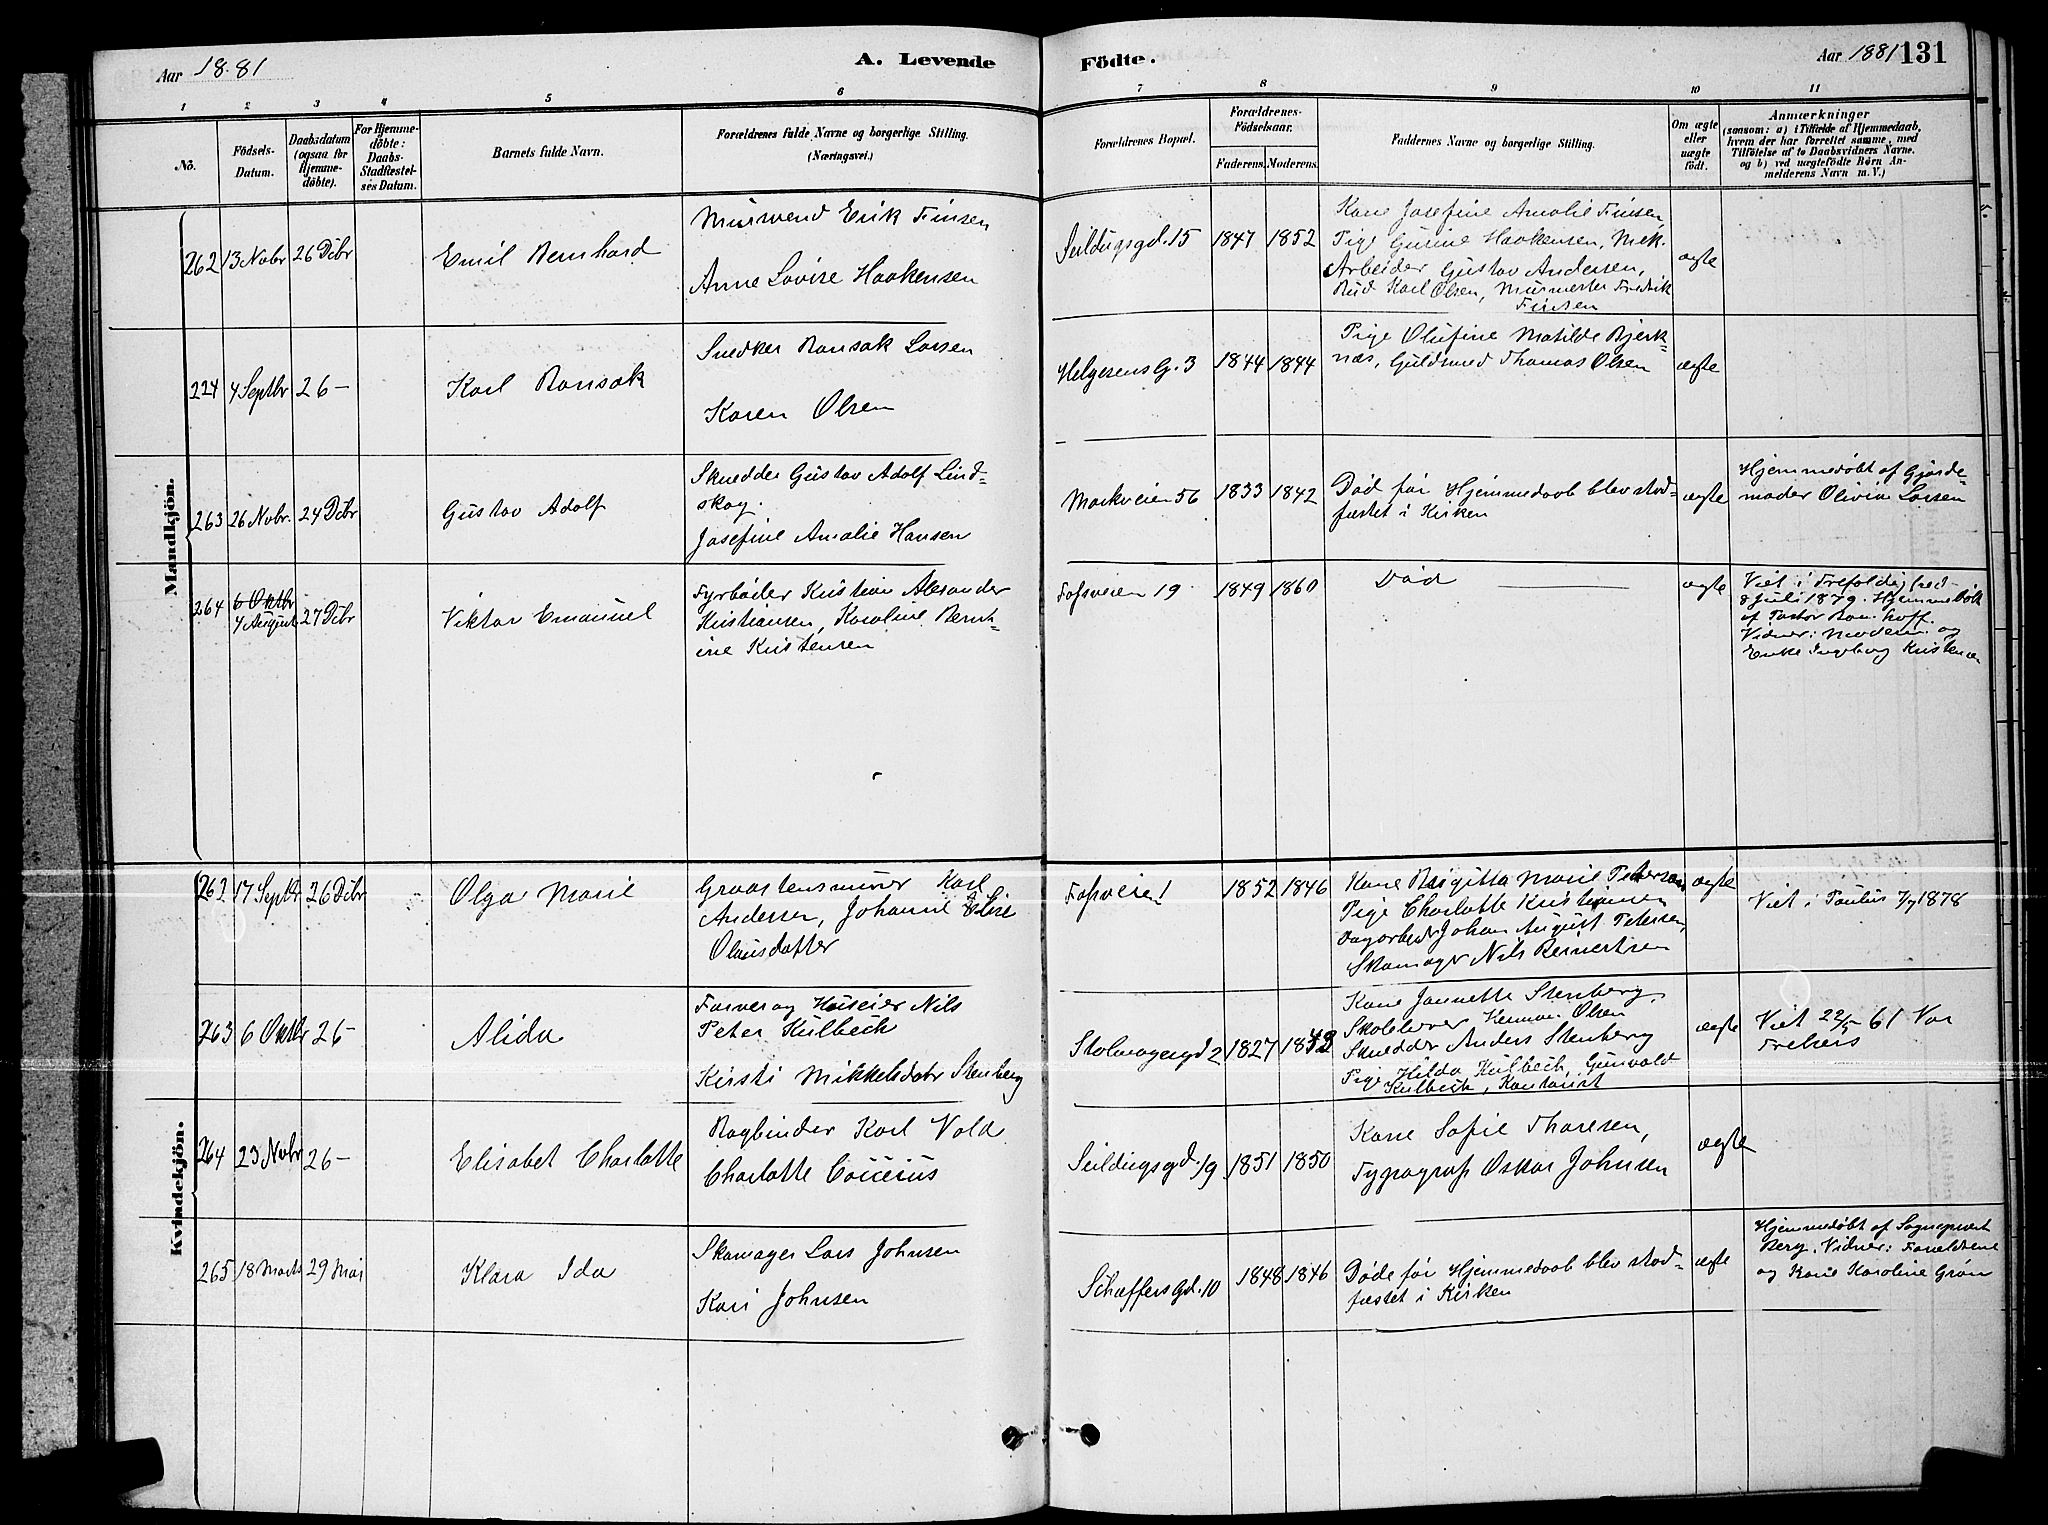 Aar 1881
A. Levende
Födte.
Aar 1881
131
1
2
3
4
5
6
7
8
9
10
11
No.
Födsels-
Datum.
Daabsdatum
(ogsaa for
Hjemme-
döbte).
For Hjemme-
döbte:
Daabs-
Stadfæstel-
ses Datum.
Barnets fulde Navn.
Forældrenes fulde Navne og borgerlige Stilling.
(Næringsvei.)
Forældrenes Bopæl.
Forældrenes-
Födselsaar.
Faderens.
Moderens.
Faddernes Navne og borgerlige Stilling.
Om ægte
eller
uægte
födt.
Anmærkninger
(saasom: a) i Tilfælde af Hjemmedaab,
hvem der har forrettet samme, med
Tilföielse af to Daabsvidners Navne.
og b) ved uægtefödte Börn An-
melderens Navn m. V.)
Mandkjön.
262 13 Novbr 26 Dcbr
Emil Bernhard
Murmend Erik Finsen
Anne Lovise Haakensen
Seildugsgd. 15 1847 1852
Kone Josefine Amalie Finsen
Pige Gusine Haakensen, Mek.
Arbeider Gustav Andersen,
Bud Karl Olsen, Murmester Fredrik
Finsen
ægte
224 4 Septbr 26 -
Karl Bonsak
Snedker Bonsak Larsen
Karen Olsen
Helgesens G. 3 1844 1844
Pige Olufine Matilde Bjerk-
næs, Guldsmed Thomas Olsen
ægte
263 26 Novbr. 24 Dcbr
Gustav Adolf
Skredder Gustav Adolf Lind-
skog.
Josefine Amalie Hansen
Markveien 56 1833 1842
Død før Hjemmedaab blev stad-
fæstet i Kirken
ægte
Hjemmedøbt af Gjorde-
moder Olivia Larsen
264 6 Oktbr
4 August 27 Dcbr
Viktor Emanuel
Fyrbøder Kristian Alexander
Kristiansen, Karoline Bernt-
ine Kristensen
Fossveien 19 1849 1860
Død
ægte
Viet i Trefoldighed-
8 Juli 1879. Hjemmedøbt
af Pastor
Vidner: Moderen og
Enke Ingeborg Kristensen
Kvindekjön.
262 17 Septbr. 26 Dcbr
Olga Marie
Graastensmurer Karl
Andersen, Johanne Elise
Olausdatter
Fossveie 1 1852 1846
Kone Birgitta Marie Petersen
Pige Charlotte Kristiansen
Dagarbeider Johan August Petersen,
Skomager Nils Bernertsen
ægte
Viet i Paulus 7/7 1878
263 6 Oktbr 26 -
Alida
Farver og Huseier Nils
Peter Kulbeck
Kirsti Mikkelsdatr Stenberg
Stolmagergd 2 1827 1842
Kone Jannette Stenberg,
Skolelærer Herman Olsen
Skredder Anders Stenberg
Pige Hilda Kulbech, Gunvald
Kulbech, Kontorist
ægte
Viet 22/5 61 Vor
Frelsers
264 23 Novbr 26 -
Elisabet Charlotte
Bogbinder Karl Vold
Charlotte Coucius
Seildugsgd. 19 1851 1850
Kone Sofie Thoresen,
Typograf Oskar Johnsen
ægte
265 18 Marts 29 Mai
Klara Ida
Skomager Lars Johnsen
Kari Johnsen
Schaffers gd. 10 1848 1846
Døde før Hjemmedaab blev stad-
fæstet i Kirken
ægte
Hjemmedøbt af Sogneprest
Berg. Vidner: Forældrene
og Kone Karoline Grøn